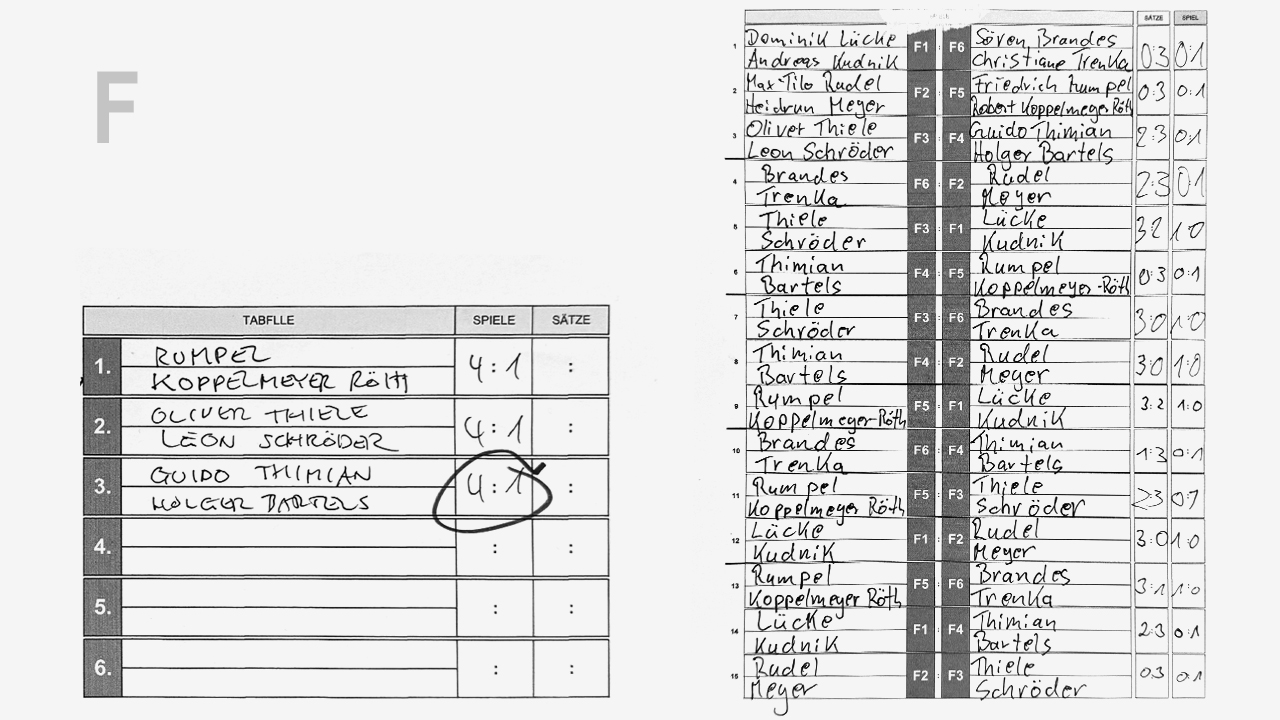 F
TABFLLE SPIELE SÄTZE
1. RUMPEL
KOPPELMEYER RÖTH 4:1 :
2. OLIVER THIELE
LEON SCHRÖDER 4:1 :
3. GUIDO THIMIAN
HOLGER BARTELS 4:1 :
4. : :
5. : :
6. : :
SÄTZE SPIEL
1 Dominik Lücke F1 : F6 Sören Brandes
Andreas Kudnik Christiane Trenka 0:3 0:1
2 Max Tilo Rudel F2 : F5 Friedrich Rumpel
Heidrun Meyer Robert Koppelmeyer Röth 0:3 0:1
3 Oliver Thiele F3 : F4 Guido Thimian
Leon Schröder Holger Bartels 2:3 0:1
4 Brandes F6 : F2 Rudel
Trenka Meyer 2:3 0:1
5 Thiele F3 : F1 Lücke
Schröder Kudnik 3:2 1:0
6 Thimian F4 : F5 Rumpel
Bartels Koppelmeyer-Röth 0:3 0:1
7 Thiele F3 : F6 Brandes
Schröder Trenka 3:0 1:0
8 Thimian F4 : F2 Rudel
Bartels Meyer 3:0 1:0
9 Rumpel F5 : F1 Lücke
Koppelmeyer-Röth Kudnik 3:2 1:0
10 Brandes F6 : F4 Thimian
Trenka Bartels 1:3 0:1
11 Rumpel F5 : F3 Thiele
Koppelmeyer Röth Schröder 2:3 0:1
12 Lücke F1 : F2 Rudel
Kudnik Meyer 3:0 1:0
13 Rumpel F5 : F6 Brandes
Koppelmeyer Röth Trenka 3:1 1:0
14 Lücke F1 : F4 Thimian
Kudnik Bartels 2:3 0:1
15 Rudel F2 : F3 Thiele
Meyer Schröder 0:3 0:1